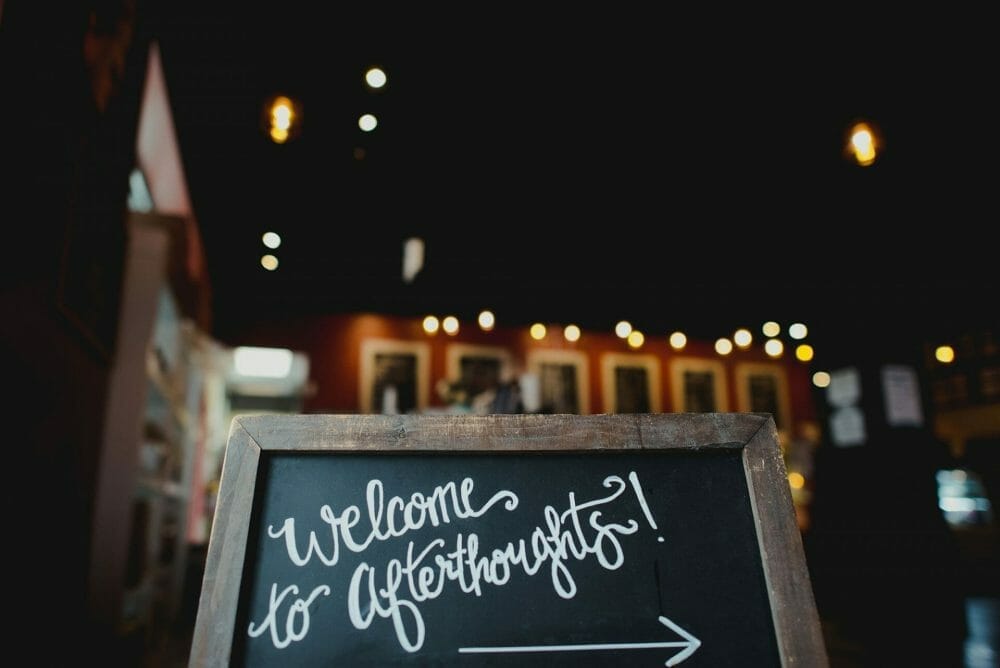 Welcome
to Afterthoughts!